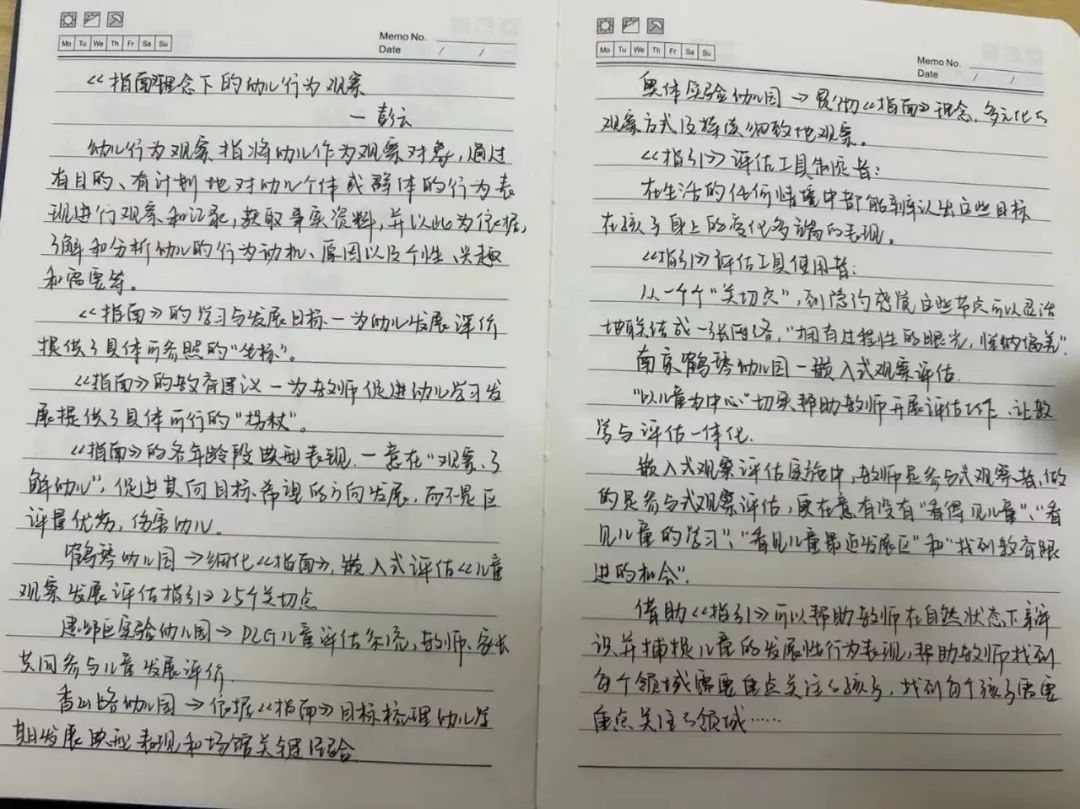 Mo Tu We Th Fr Sa Su
Memo No.
Date / /
《指南》理念下的幼儿行为观察
— 彭云
幼儿行为观察指将幼儿作为观察对象,通过
有目的、有计划地对幼儿个体或群体的行为表
现进行观察和记录,获取事实资料,并以此为依据,
了解和分析幼儿的行为动机、原因以及个性、兴趣
和需要等。
《指南》的学习与发展目标—为幼儿发展评价
提供了具体可参照的“坐标”。
《指南》的教育建议—为教师促进幼儿学习发
展提供了具体可行的“拐杖”。
《指南》的各年龄段典型表现—意在“观察、了
解幼儿”,促进其向目标、希望的方向发展,而不是
评量优劣,伤害幼儿。
鹤琴幼儿园→细化《指南》,嵌入式评估《儿童
观察发展评估指引》25个关切点
建邺区实验幼儿园→DLG儿童评估系统,教师、家长
共同参与儿童发展评价.
香山路幼儿园→依据《指南》目标梳理幼儿
期发展典型表现和场馆关键经验
Mo Tu We Th Fr Sa Su
Memo No.
Date / /
奥体实验幼儿园→贯彻《指南》理念,多元化的
观察方式及持续细致地观察。
《指引》评估工具制定者:
在生活的任何情境中都能辨认出这些目标
在孩子身上的变化多端的表现。
《指引》评估工具使用者:
从一个个“关切点”,到隐约感觉这些节点可以灵活
地联结成一张网络,“拥有过程性的眼光,悦纳偏差”.
南京鹤琴幼儿园—嵌入式观察评估.
“以儿童为中心”切实帮助教师开展评估工作,让教
学与评估一体化.
嵌入式观察评估实施中,教师是参与式观察者,做
的是参与式观察评估,更在意有没有“看得见儿童”、“看
见儿童的学习”、“看见儿童最近发展区”和“找到教育跟
进的机会”.
借助《指引》可以帮助教师在自然状态下辨
识并捕捉儿童的发展性行为表现,帮助教师找到
每个领域需要重点关注的孩子,找到每个孩子需要
重点关注的领域……